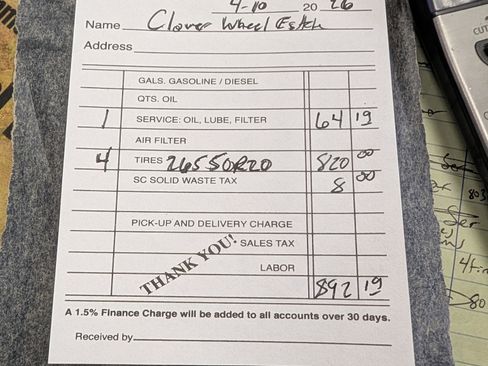 4-10 20 26
Name Clover Wheel
Address
GALS. GASOLINE / DIESEL
QTS. OIL
1 SERVICE: OIL, LUBE, FILTER 64 19
AIR FILTER
4 TIRES 26550R20 820 00
SC SOLID WASTE TAX 8 00
PICK-UP AND DELIVERY CHARGE
THANK YOU! SALES TAX
LABOR
892 19
A 1.5% Finance Charge will be added to all accounts over 30 days.
Received by
CUT
803
4 tir
80